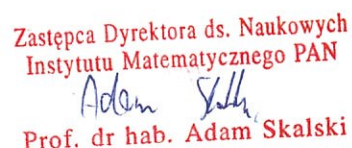 Zastępca Dyrektora ds. Naukowych
Instytutu Matematycznego PAN
Adam Skalski
Prof. dr hab. Adam Skalski